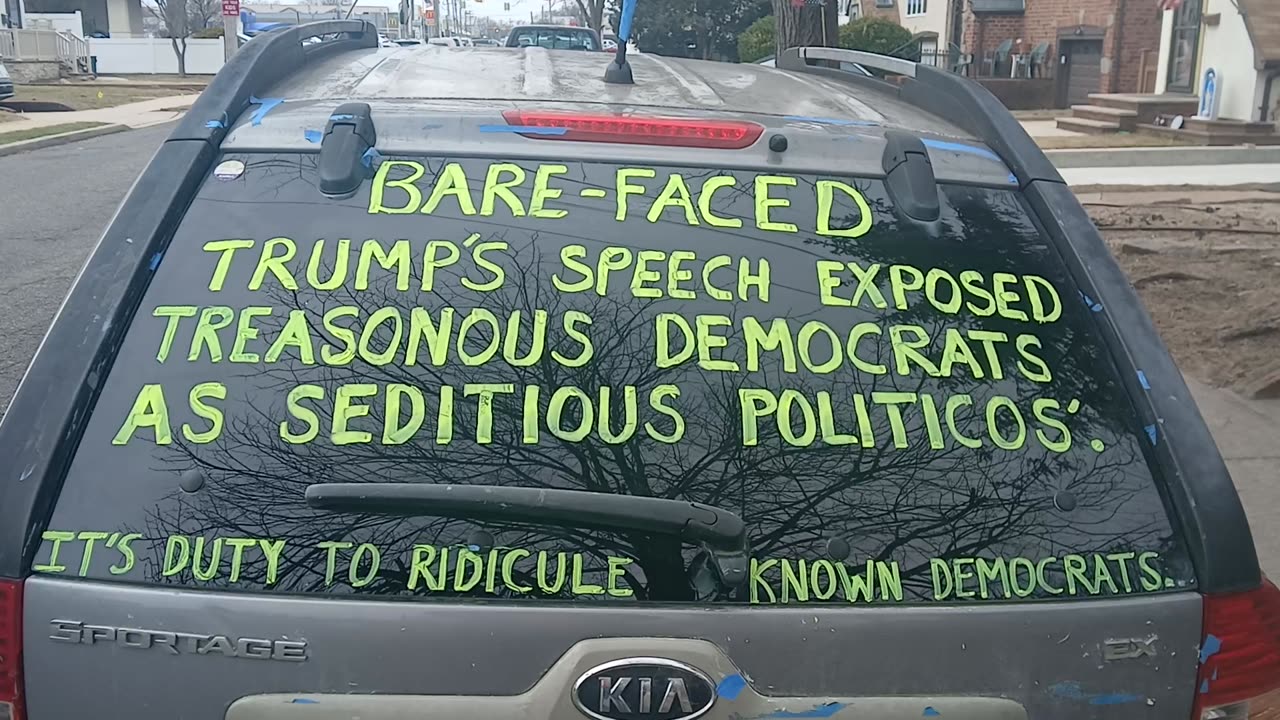 BARE-FACED
TRUMP'S SPEECH EXPOSED
TREASONOUS DEMOCRATS
AS SEDITIOUS POLITICOS'.
IT'S DUTY TO RIDICULE KNOWN DEMOCRATS.
SPORTAGE
EX
KIA